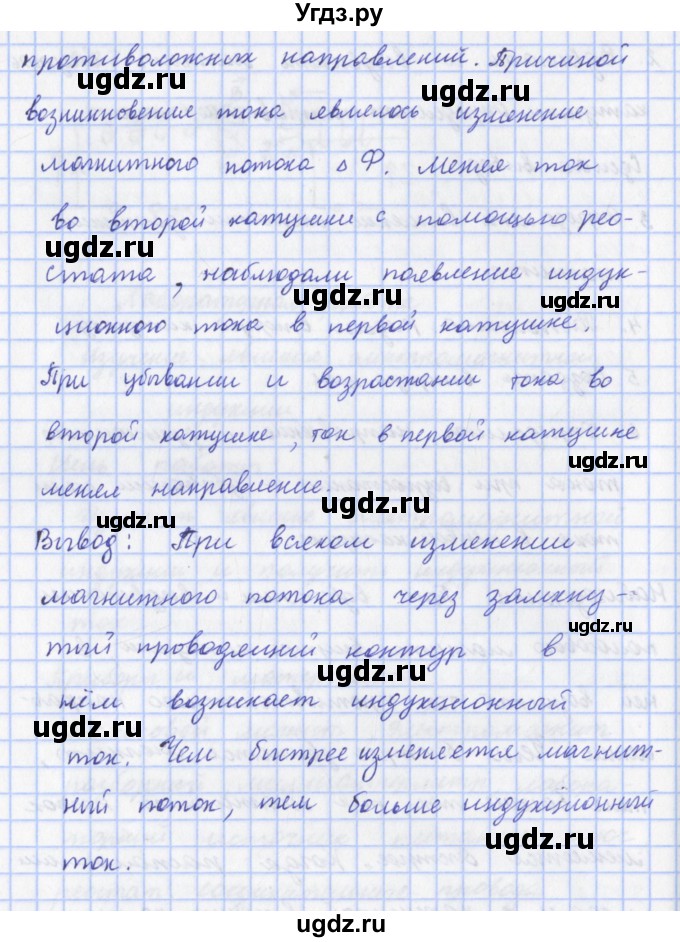 Угдз.ру
противоложных направлений. Причиной
ugdz.ru
ugdz.ru
возникновения тока являлось изменение
магнитного потока Δ Ф. Меняя ток
ugdz.ru
во второй катушки с помощью рео-
ugdz.ru
стата, наблюдали появление индук-
ugdz.ru
ugdz.ru
ционного тока в первой катушке.
При убывании и возрастании тока во
ugdz.ru
второй катушке, ток в первой катушке
менял направление.
ugdz.ru
ugdz.ru
Вывод: При всяком изменении
магнитного потока через замкну-
ugdz.ru
тый проводящий контур в
ugdz.ru
нём возникает индукционный
ugdz.ru
ток. Чем быстрее изменяется магнит-
ный поток, тем больше индукционный
ugdz.ru
ток.
ugdz.ru